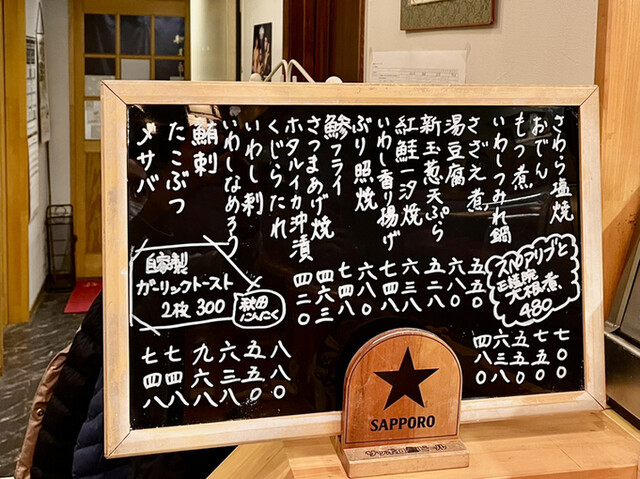 さわら塩焼
おでん
もつ煮
いわしつみれ鍋
さざえ煮
湯豆腐
新玉葱天ぷら
紅鮭一汐焼
いわし香り揚げ
ぶり照焼
鯵フライ
さつまあげ焼
ホタルイカ沖漬
くじらたれ
いわし刺
いわしなめろう
鮪刺
たこぶつ
メサバ
スペアリブと
大根煮
480
七〇〇
七五〇
五五〇
六三八
四八〇
五五〇
六八〇
五二八
六三八
七四八
六八〇
七四八
四六三
四二〇
五五〇
六三八
九六八
七四八
七四八
自家製
ガーリックトースト
2枚 300
秋田
にんにく
SAPPORO